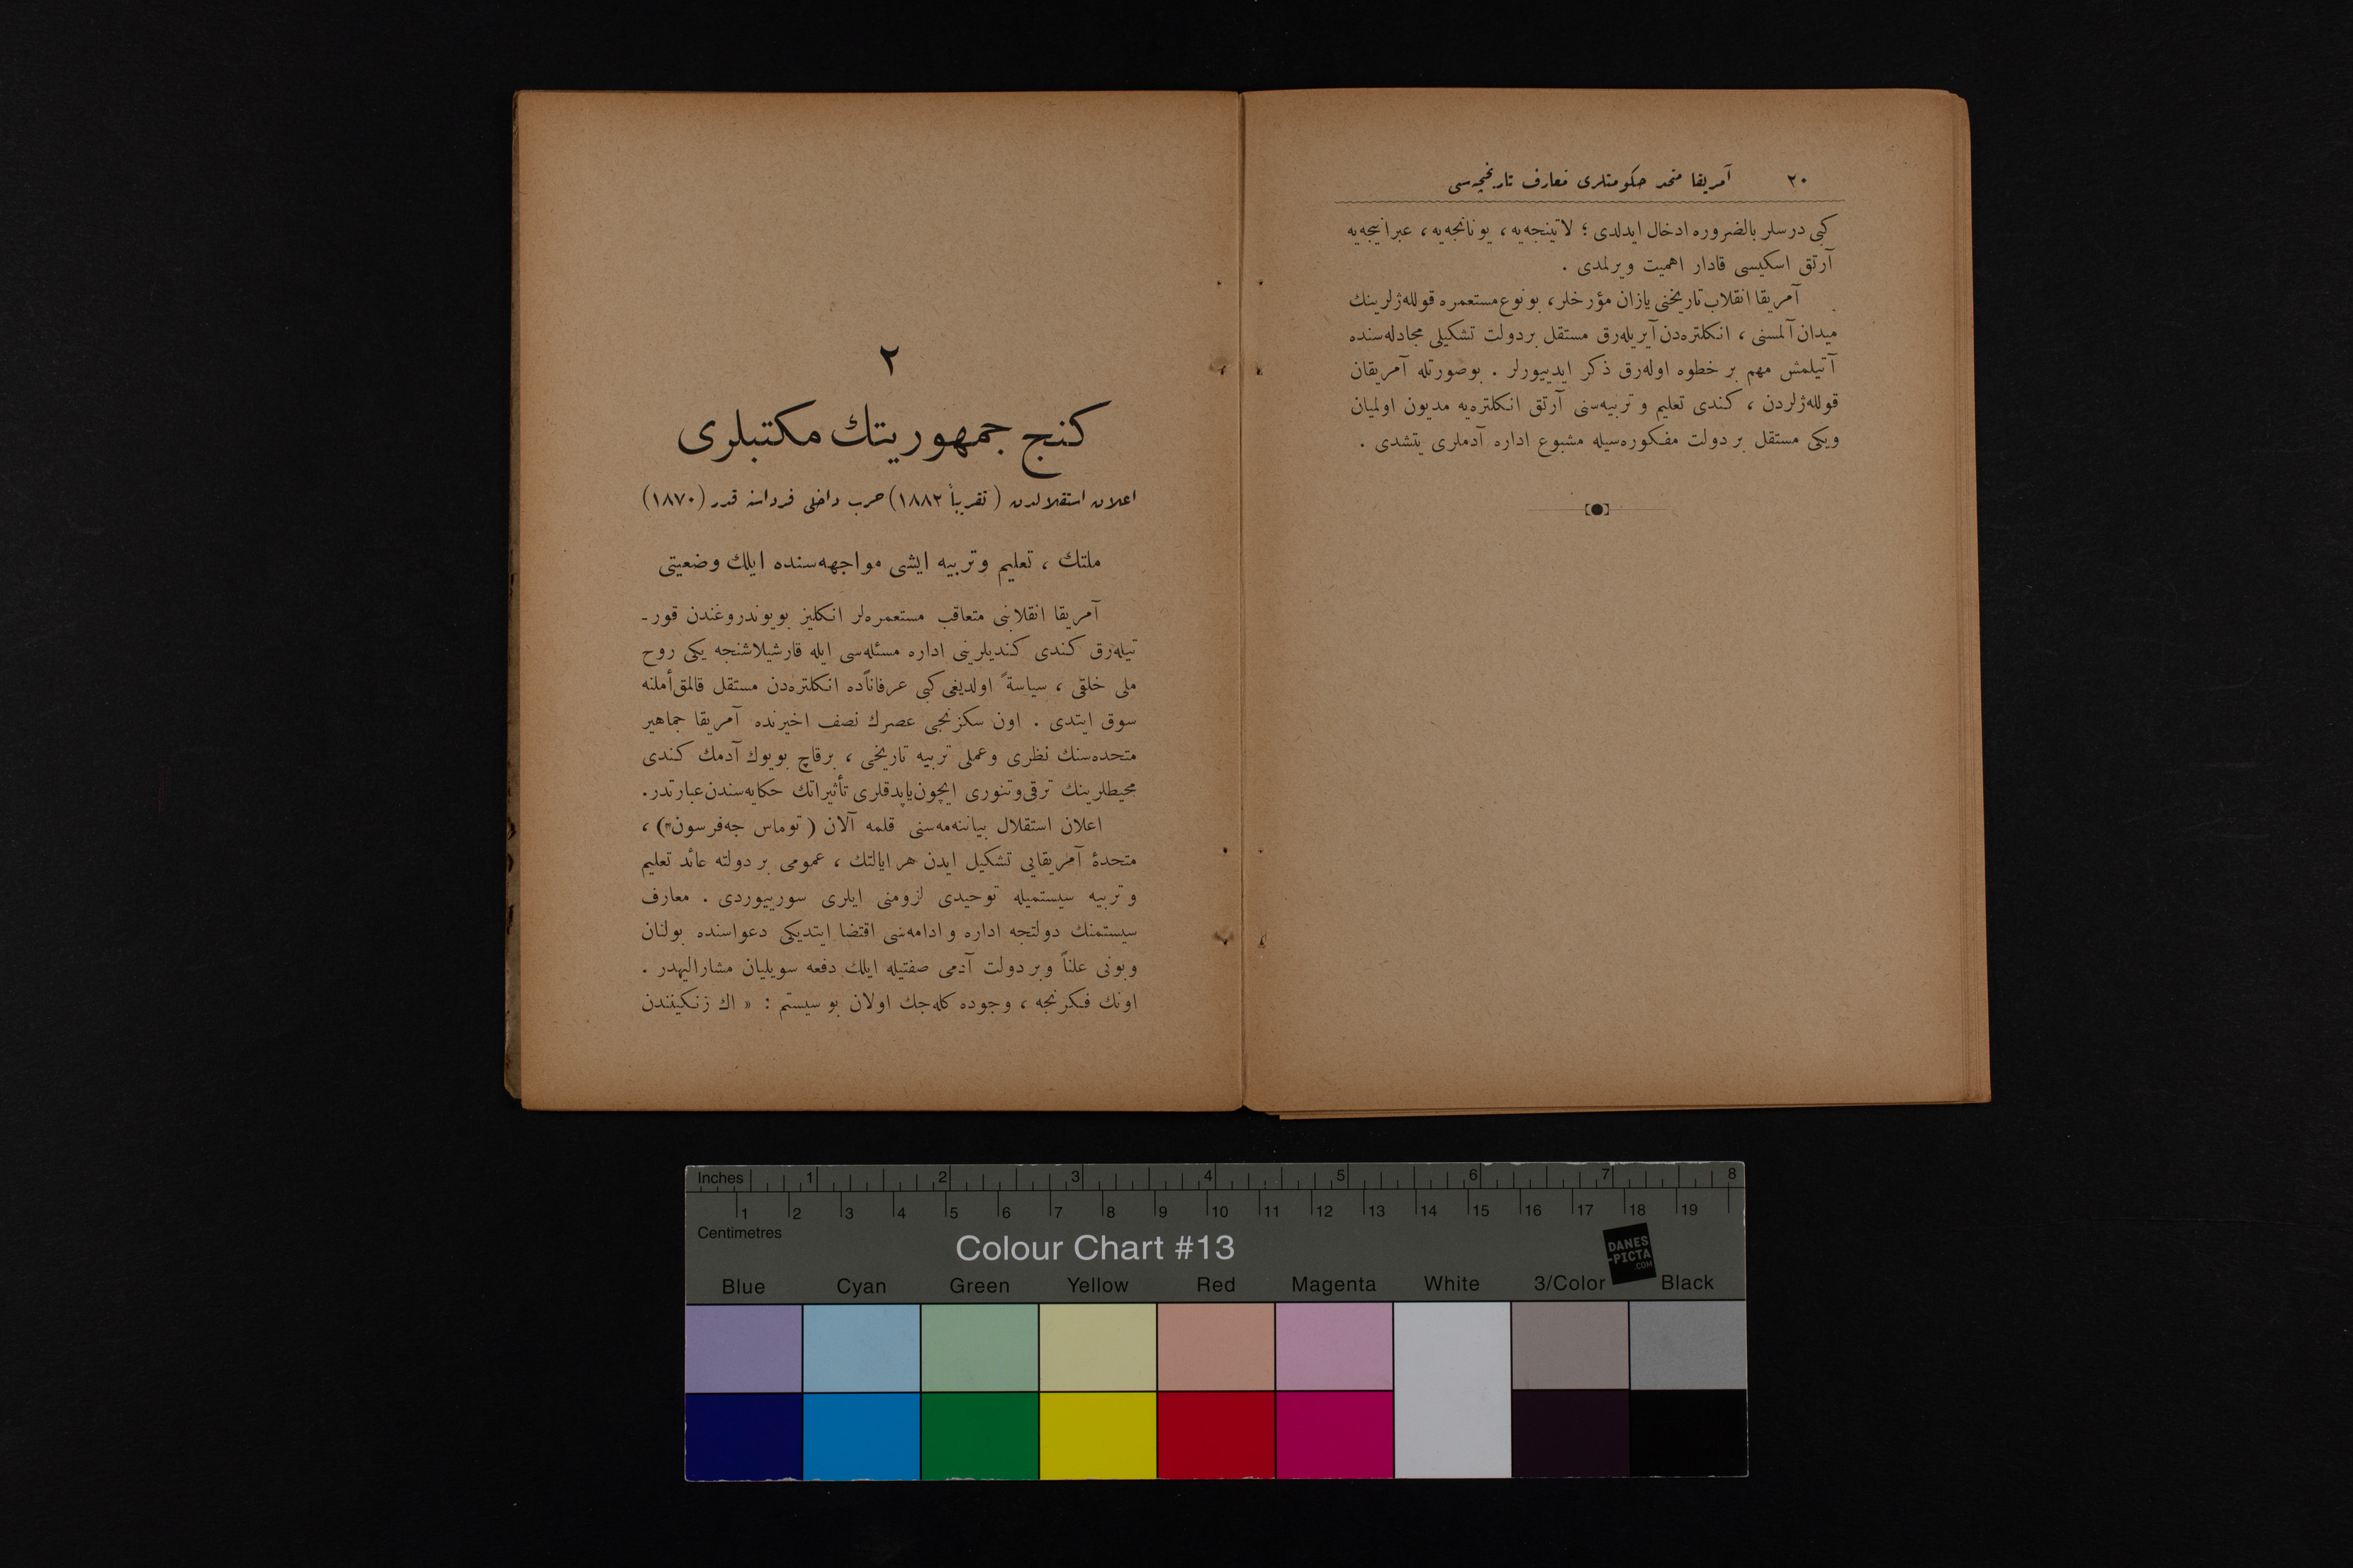 ٢٠ آمریقا متحد حكومتلری معارف تاریخچه‌سی
كبی درسلر بالضروره ادخال ایدلدی ؛ لاتینجه‌یه ، یونانجه‌یه ، عبرانیجه‌یه
آرتق اسكیسی قادار اهمیت ویرلمدی .
آمریقا انقلاب تاریخنی یازان مؤرخلر ، بو نوع مستعمره قولله‌ژلرینك
میدان آلمسنی ، انكلتره‌دن آیریله‌رق مستقل بر دولت تشكیلی مجادله‌سنده
آتیلمش مهم بر خطوه اوله‌رق ذكر ایدییورلر . بوصورتله آمریقان
قولله‌ژلردن ، كندی تعلیم و تربیه‌سنی آرتق انكلتره‌یه مدیون اولمیان
ویكی مستقل بر دولت مفكوره‌سیله مشبوع اداره آدملری یتشدی .
٢
كنج جمهوریتك مكتبلری
اعلان استقلالدن ( تقریباً ١٨٨٢ ) حرب داخلی فرداسنه قدر (١٨٧٠)
ملتك ، تعلیم وتربیه ایشی مواجهه‌سنده ایلك وضعیتی
آمریقا انقلابنی متعاقب مستعمره‌لر انكلیز بویوندروغندن قور-
تیله‌رق كندی كندیلرینی اداره مسئله‌سی ایله قارشیلاشنجه یكی روح
ملی خلقی ، سیاسةً اولدیغی كبی عرفاناًده انكلتره‌دن مستقل قالمق أملنه
سوق ایتدی . اون سكزنجی عصرك نصف اخیرنده آمریقا جماهیر
متحده‌سنك نظری وعملی تربیه تاریخی ، برقاچ بویوك آدمك كندی
محیطلرینك ترقی وتنوری ایچون یاپدقلری تأثیراتك حكایه‌سندن عبارتدر .
اعلان استقلال بیاننه‌مه‌سنی قلمه آلان ( توماس جه‌فرسون") ،
متحدۀ آمریقایی تشكیل ایدن هر ایالتك ، عمومی بر دولته عائد تعلیم
و تربیه سیستمیله توحیدی لزومنی ایلری سورییوردی . معارف
سیستمنك دولتجه اداره و ادامه‌سی اقتضا ایتدیكی دعواسنده بولنان
وبونی علناً وبر دولت آدمی صفتیله ایلك دفعه سویلیان مشارالیهدر .
اونك فكرنجه ، وجوده كله‌جك اولان بو سیستم : « اك زنكیفندن
Inches 1 2 3 4 5 6 7 8
1 2 3 4 5 6 7 8 9 10 11 12 13 14 15 16 17 18 19
Centimetres
Colour Chart #13
DANES
-PICTA
.COM
Blue Cyan Green Yellow Red Magenta White 3/Color Black